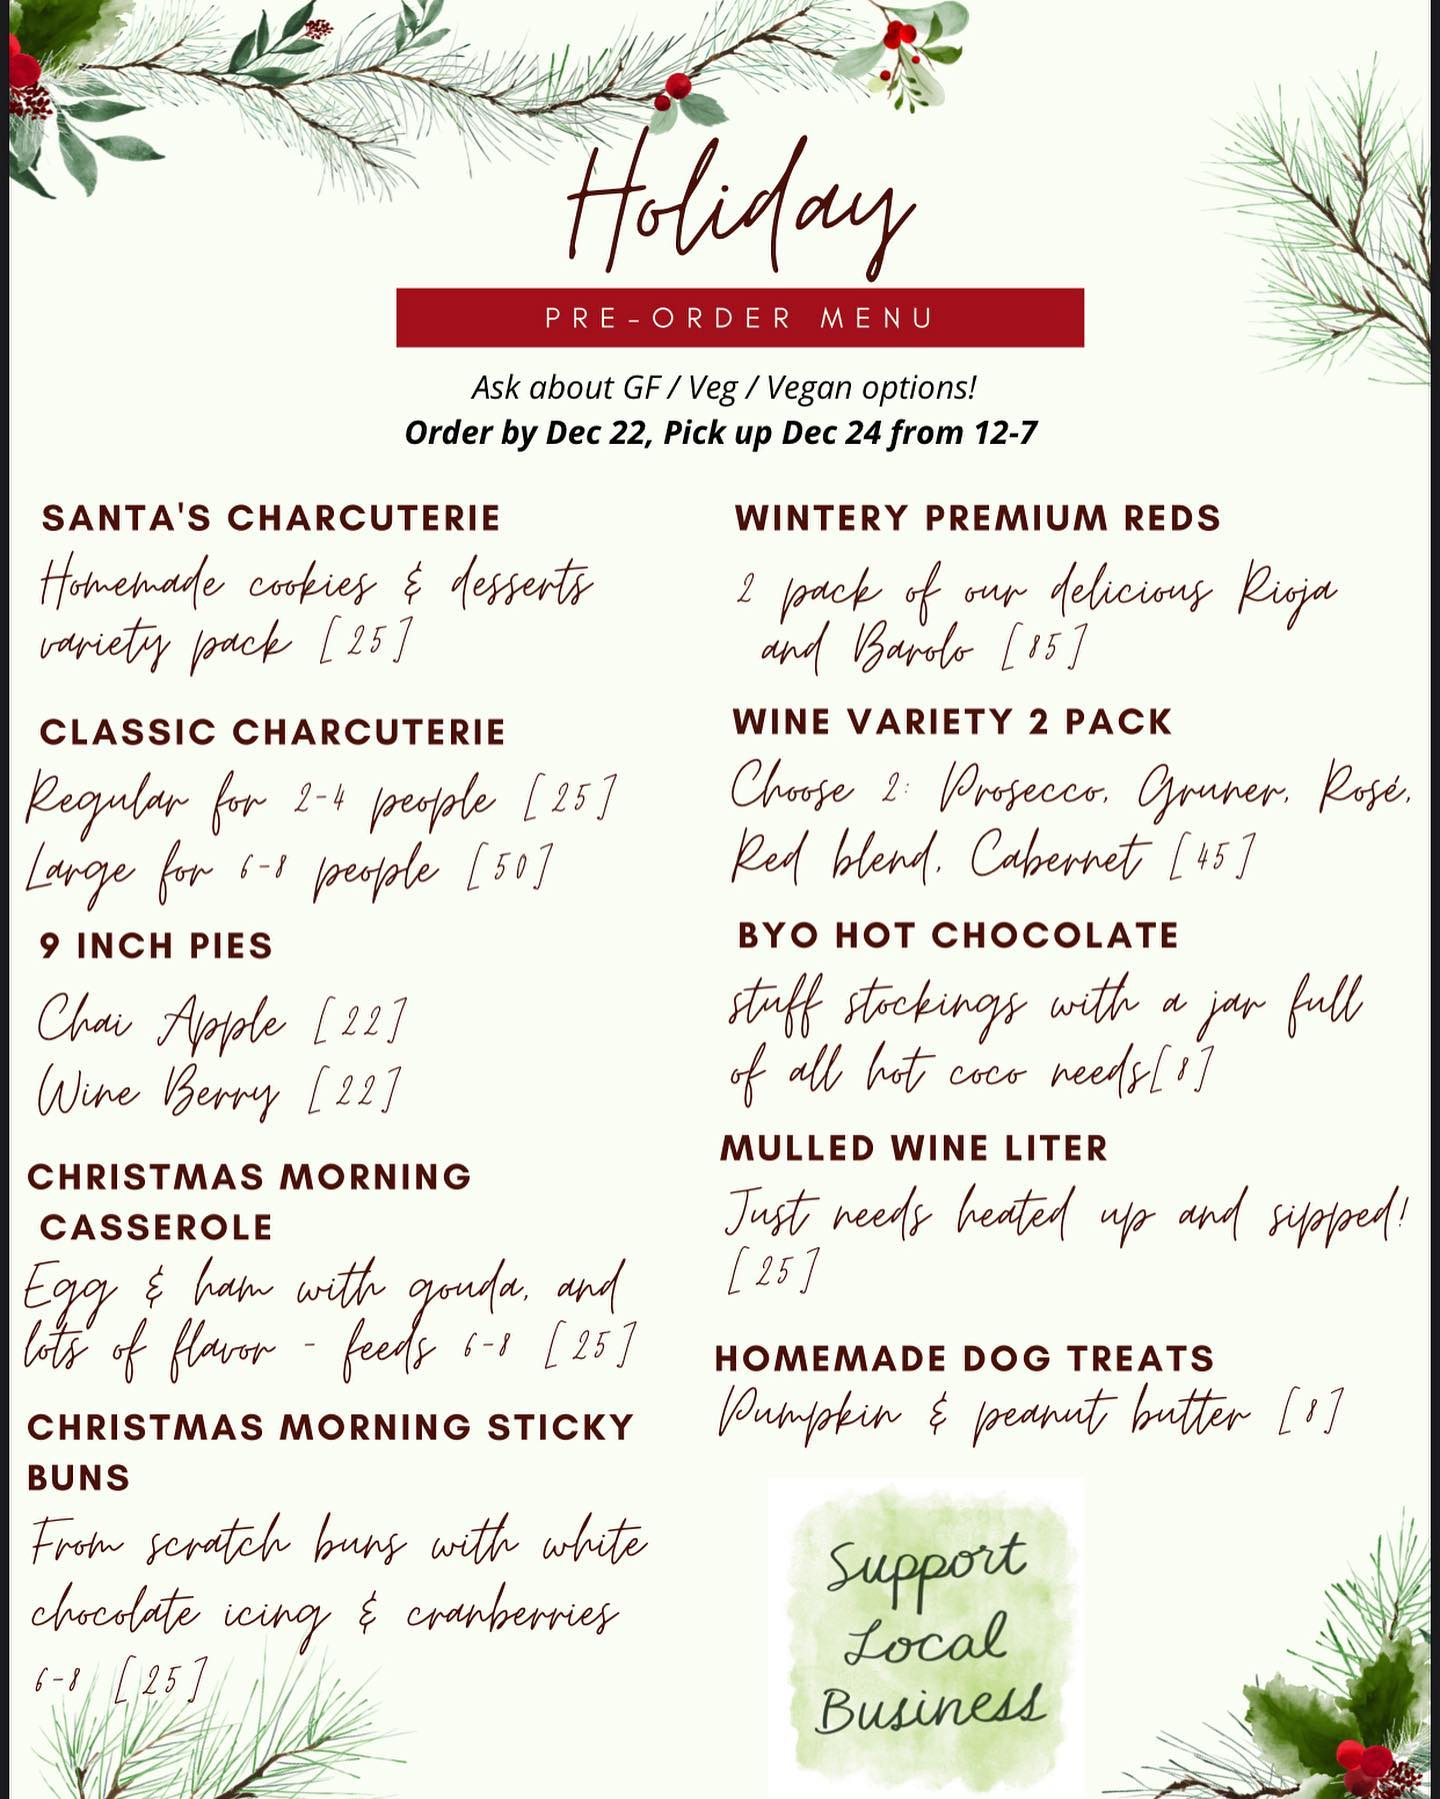 Holiday
PRE-ORDER MENU
Ask about GF / Veg / Vegan options!
Order by Dec 22, Pick up Dec 24 from 12-7
SANTA'S CHARCUTERIE
Homemade cookies & desserts
variety pack [25]
CLASSIC CHARCUTERIE
Regular for 2-4 people [25]
Large for 6-8 people [50]
9 INCH PIES
Chai Apple [22]
Wine Berry [22]
CHRISTMAS MORNING
CASSEROLE
Egg & ham with gouda, and
lots of flavor - feeds 6-8 [25]
CHRISTMAS MORNING STICKY
BUNS
From scratch buns with white
chocolate icing & cranberries
6-8 [25]
WINTERY PREMIUM REDS
2 pack of our delicious Rioja
and Barolo [85]
WINE VARIETY 2 PACK
Choose 2: Prosecco, Gruner, Rosé,
Red blend, Cabernet [45]
BYO HOT CHOCOLATE
stuff stockings with a jar full
of all hot coco needs[8]
MULLED WINE LITER
Just needs heated up and sipped!
[25]
HOMEMADE DOG TREATS
Pumpkin & peanut butter [8]
Support
Local
Business